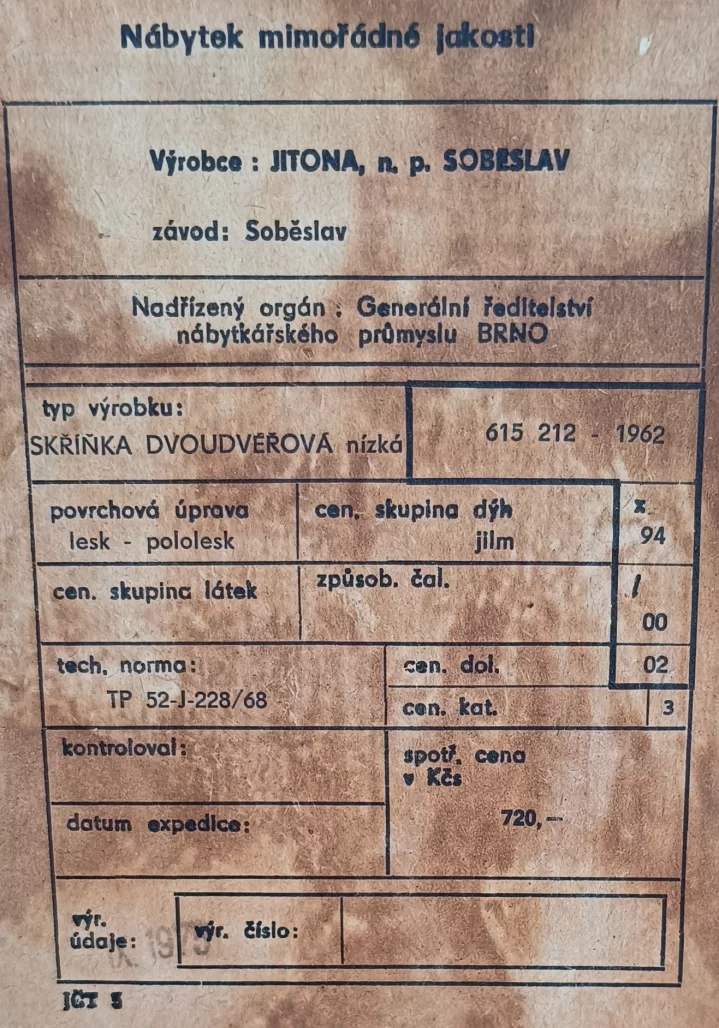 Nábytek mimořádné jakosti
Výrobce : JITONA, n. p. SOBĚSLAV
závod: Soběslav
Nadřízený orgán : Generální ředitelství
nábytkářského průmyslu BRNO
typ výrobku:
SKŘÍŇKA DVOUDVÉŘOVÁ nízká
615 212 - 1962
povrchová úprava
lesk - pololesk
cen. skupina dýh
jilm
x
94
cen. skupina látek
způsob. čal.
/
00
tech. norma:
TP 52-J-228/68
cen. dol.
02
cen. kat.
3
kontroloval:
spotř. cena
v Kčs
720,—
datum expedice:
výr.
údaje:
výr. číslo:
JČT 5